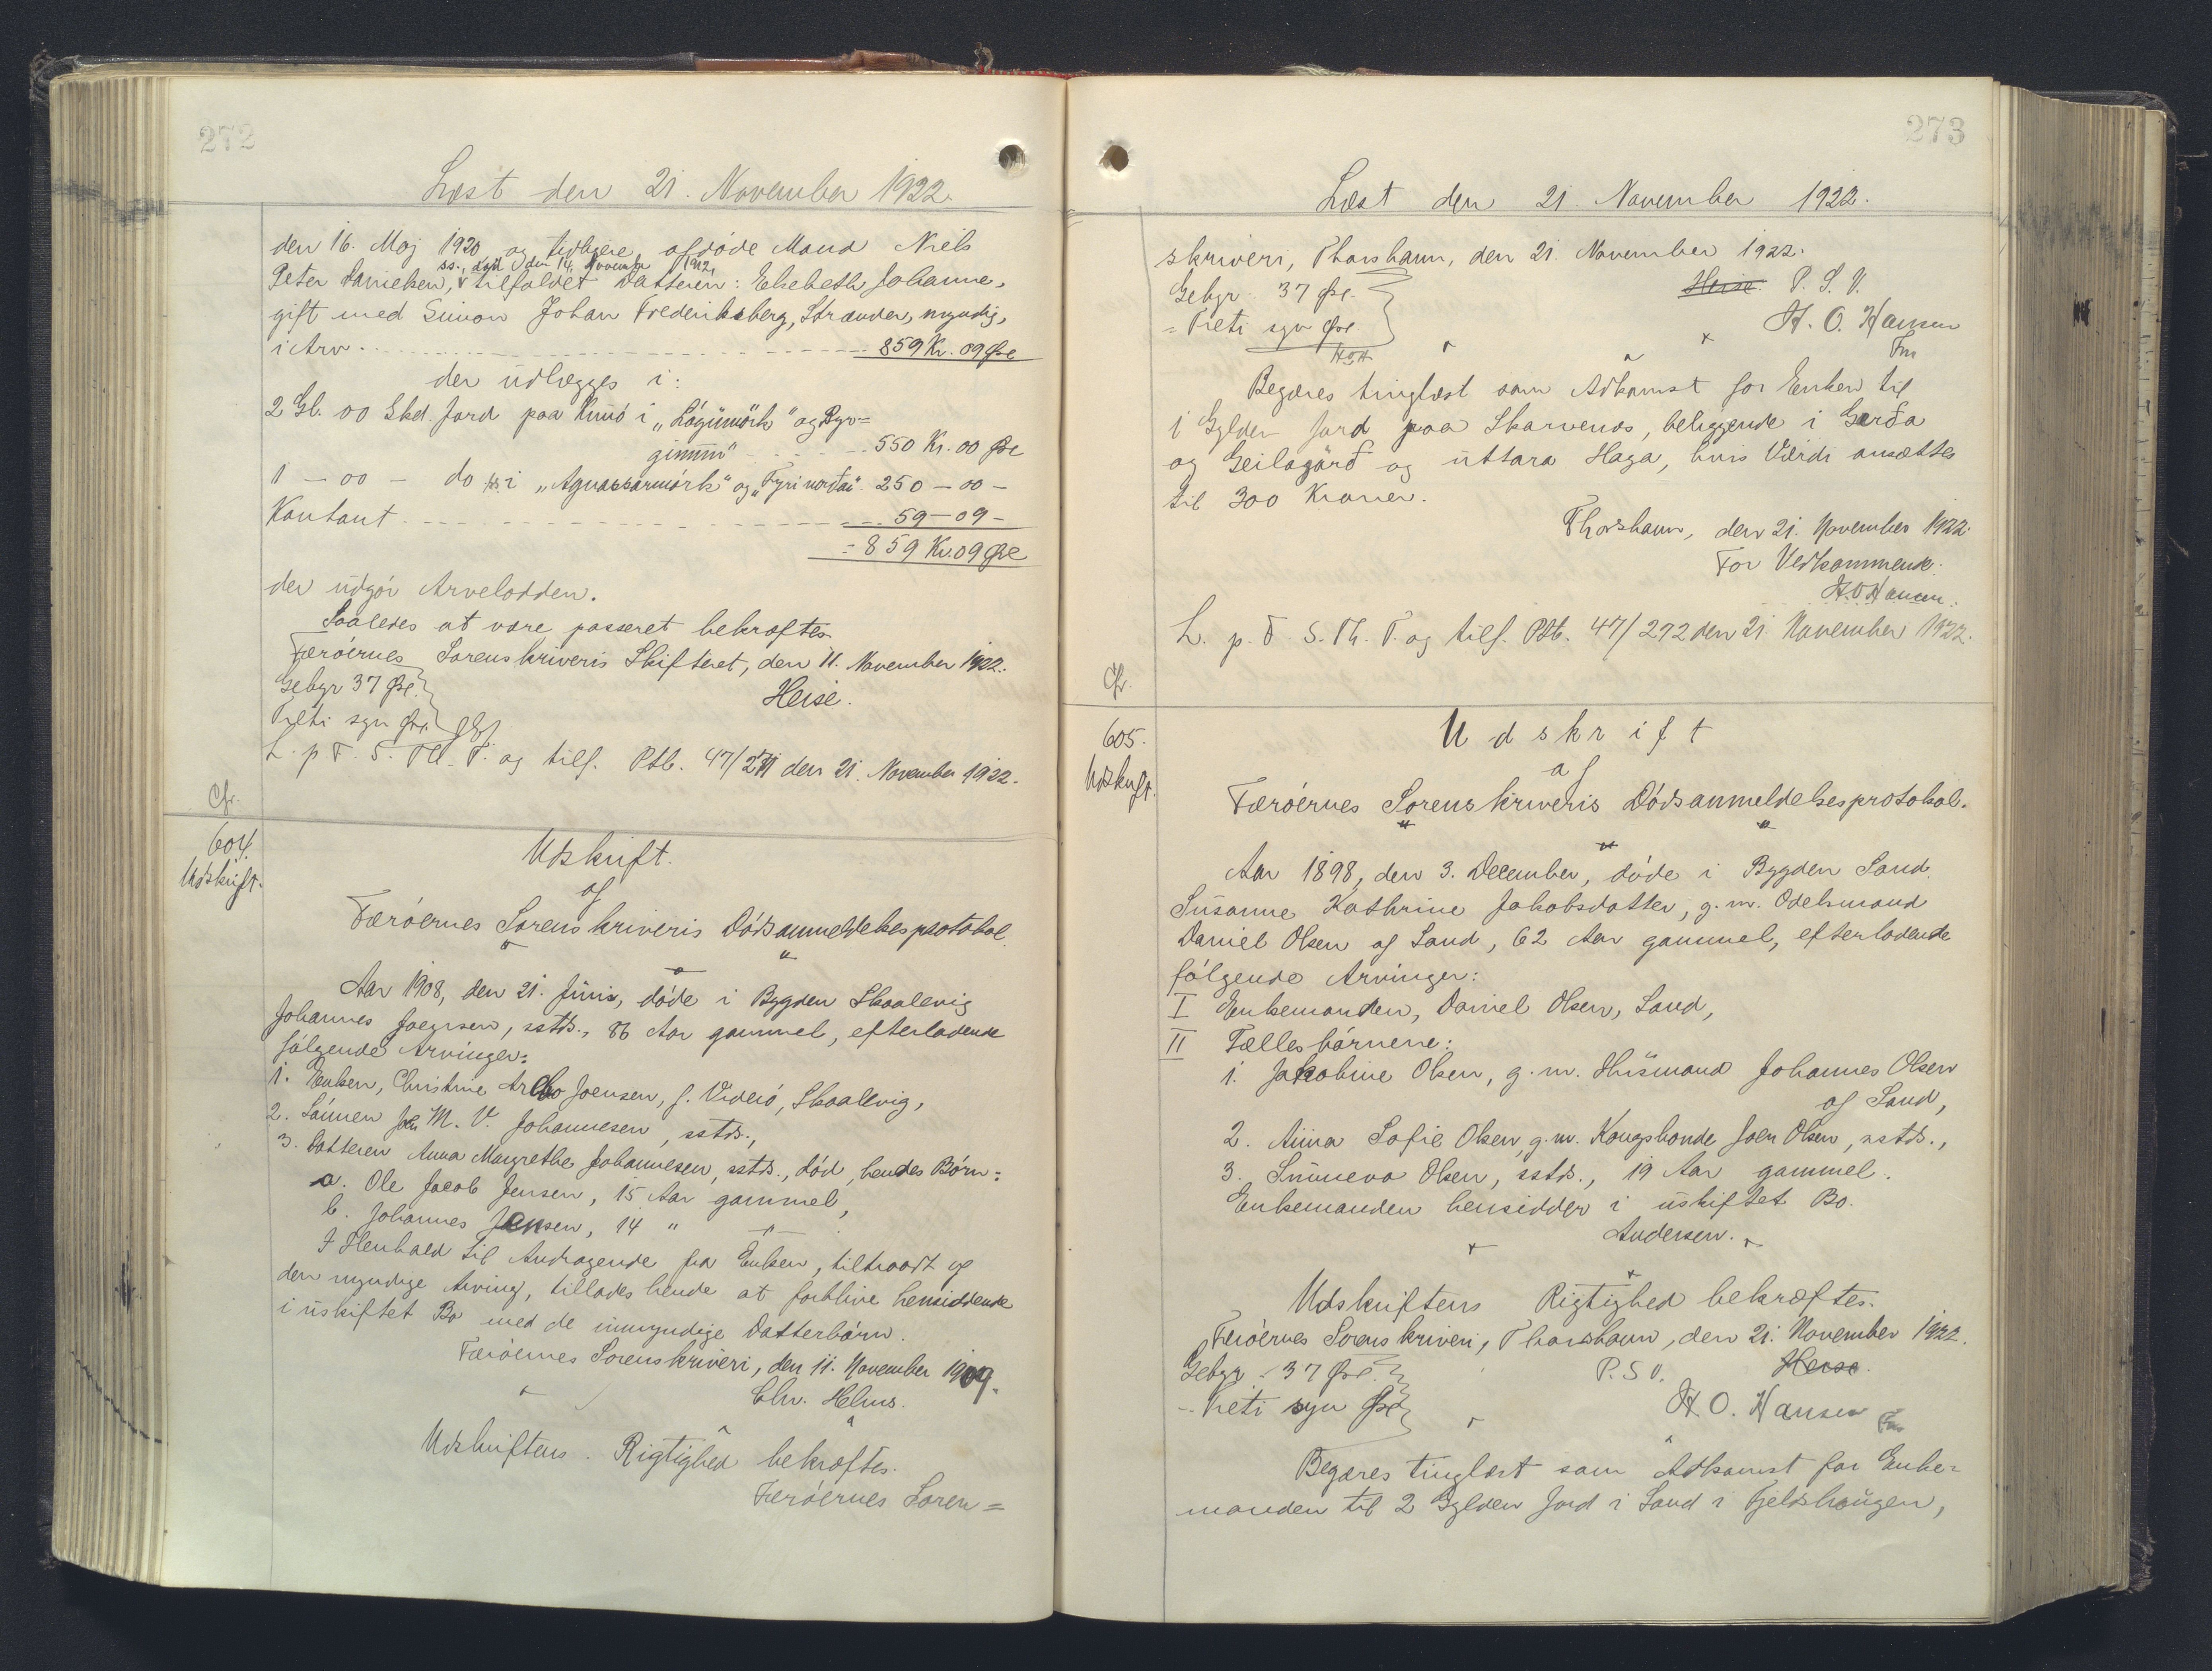 272
Læst den 21. November 1922.
den 16. Maj 1920 og tidligere afdøde Mand Niels
ss., død den 14. November 1912,
Peter Danielsen, tilfaldet Datteren: Elsebeth Johanne,
gift med Simon Johan Frederiksberg, Strænder, myndig,
i Arv - - - 859 Kr. 09 Øre
der udlægges i:
2 Gl. 00 Skd. Jord paa Skuø i „Lágümørk" og Byr=
gimmi" - - - 550 Kr. 00 Øre
1 - 00 - do ss. i „Agnassarmørk" og „Fyri nordan". 250 - 00 -
Kontant - - - 59 - 09 -
= 859 Kr. 09 Øre
der udgør Arvelodden.
Saaledes at være passeret bekræftes.
Færøernes Sorenskriveris Skifteret, den 11. November 1922.
Gebyr 37 Øre.
Heise.
Treti syv Øre
L. p. F. S. Th. T. og tilf. Ptb. 47/271 den 21. November 1922.
Cfr.
604.
Udskrift.
Udskrift.
af
Færøernes Sorenskriveris Dødsanmeldelsesprotokol.
Aar 1908, den 21. Juni, døde i Bygden Skaalevig
Johannes Joensen, sstds., 86 Aar gammel, efterladende
følgende Arvinger:
1. Enken, Christine Joensen, f. Viderø, Skaalevig,
2. Sønnen Joen M. V. Johannesen, sstds.,
3. Datteren Anna Margrethe Johannesen, sstds., død, hendes Børn:
a. Ole Jacob Jensen, 15 Aar gammel,
b. Johannes Jensen, 14 " -"-.
I Henhold til Andragende fra Enken, tiltraadt af
den myndige Arving, tillades hende at forblive hensiddende
i uskiftet Bo med de umyndige Datterbørn.
Færøernes Sorenskriveri, den 11. November 1909.
Chr. Helms.
Udskriftens Rigtighed bekræftes.
Færøernes Soren=
273
Læst den 21. November 1922.
skriveri, Thorshavn, den 21. November 1922.
Gebyr: 37 Øre.
Heise. P. S. V.
= Treti syv Øre
H. O. Hansen
HOH
Fm
Begæres tinglæst som Adkomst for Enken til
1 Gylden Jord paa Skarvenes, beliggende i Gerða
og Geilagärð og úttara Haga, hvis Værdi ansættes
til 300 Kroner.
Thorshavn, den 21. November 1922.
For Vedkommende:
H.O.Hansen.
L. p. F. S. Th. T. og tilf. Ptb. 47/272 den 21. November 1922.
Cfr.
605.
Udskrift.
Udskrift
af
Færøernes Sorenskriveris Dødsanmeldelsesprotokol.
Aar 1898, den 3. December, døde i Bygden Sand
Susanne Kathrine Jakobsdatter, g. m. Odelsmand
Daniel Olsen af Sand, 62 Aar gammel, efterladende
følgende Arvinger:
I Enkemanden, Daniel Olsen, Sand,
II Fællesbørnene:
1. Jakobine Olsen, g. m. Husmand Johannes Olsen
af Sand,
2. Anna Sofie Olsen, g. m. Kongsbonde Joen Olsen, sstds.,
3. Sunneva Olsen, sstds., 19 Aar gammel.
Enkemanden hensidder i uskiftet Bo.
Andersen.
Udskriftens Rigtighed bekræftes.
Færøernes Sorenskriveri, Thorshavn, den 21. November 1922.
Gebyr: 37 Øre.
P. S. V. Heise.
- Treti syv Øre
H. O. Hansen
Fm
Begæres tinglæst som Adkomst for Enke=
manden til 2 Gylden Jord i Sand i Fjeldshaugen,